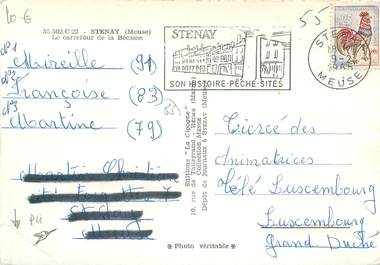 10 €
55
55.502.C 22 - STENAY (Meuse)
Le carrefour de la Bécasse
STENAY
SON HISTOIRE-PÊCHE-SITES
STENAY
MEUSE
N°1 Mireille (91)
N°2 Françoise (83)
N°3 Martine (79)
55
Editions "La Cigogne"
Collection MENGUS
Dépôt de Journaux à STENAY (Meuse)
Tiercé des
Animatrices
Télé Luxembourg
Luxembourg
Grand Duché
* Photo véritable *